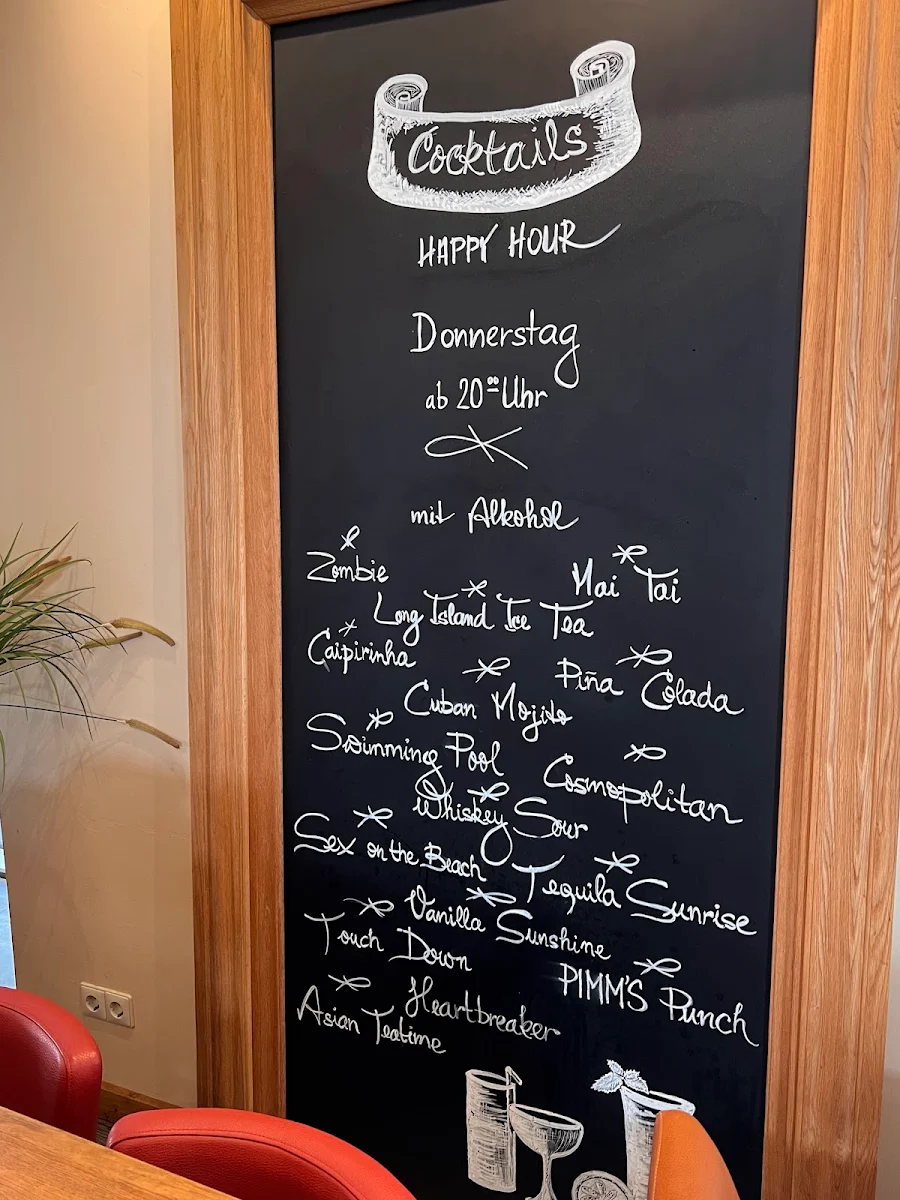 Cocktails
HAPPY HOUR
Donnerstag
ab 20⁰⁰ Uhr
mit Alkohol
Zombie
Mai Tai
Long Island Ice Tea
Caipirinha
Piña Colada
Cuban Mojito
Swimming Pool
Cosmopolitan
Whiskey Sour
Sex on the Beach
Tequila Sunrise
Vanilla Sunshine
Touch Down
PIMM'S Punch
Heartbreaker
Asian Teatime